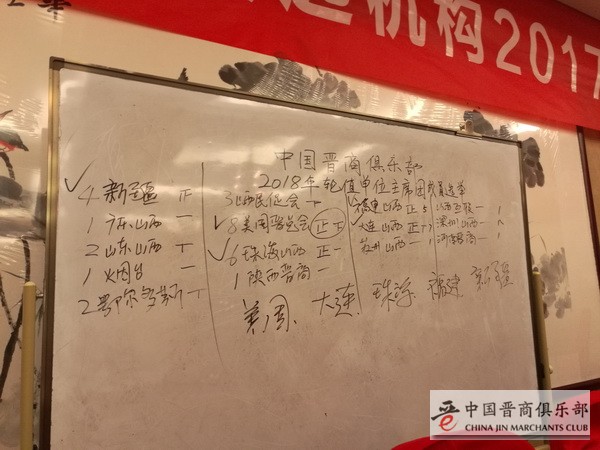 机构2017
中国晋商俱乐部
2018年轮值单位主席团成员选举
✓4 新疆 正
1 广东山西 一
2 山东山西 丅
1 烟台 一
2 鄂尔多斯 丅
3 山西民促会
✓8 美国晋总会 正下
✓6 珠海山西 正一
1 陕西晋商 一
✓福建山西 正 5
大连 山西 正丅 7
苏州山西 一 1
山西互联 一 1
深圳山西 一
河南晋商 一 1
美国、大连 珠海 福建 新疆
晋 中国晋商俱乐部
CHINA JIN MARCHANTS CLUB